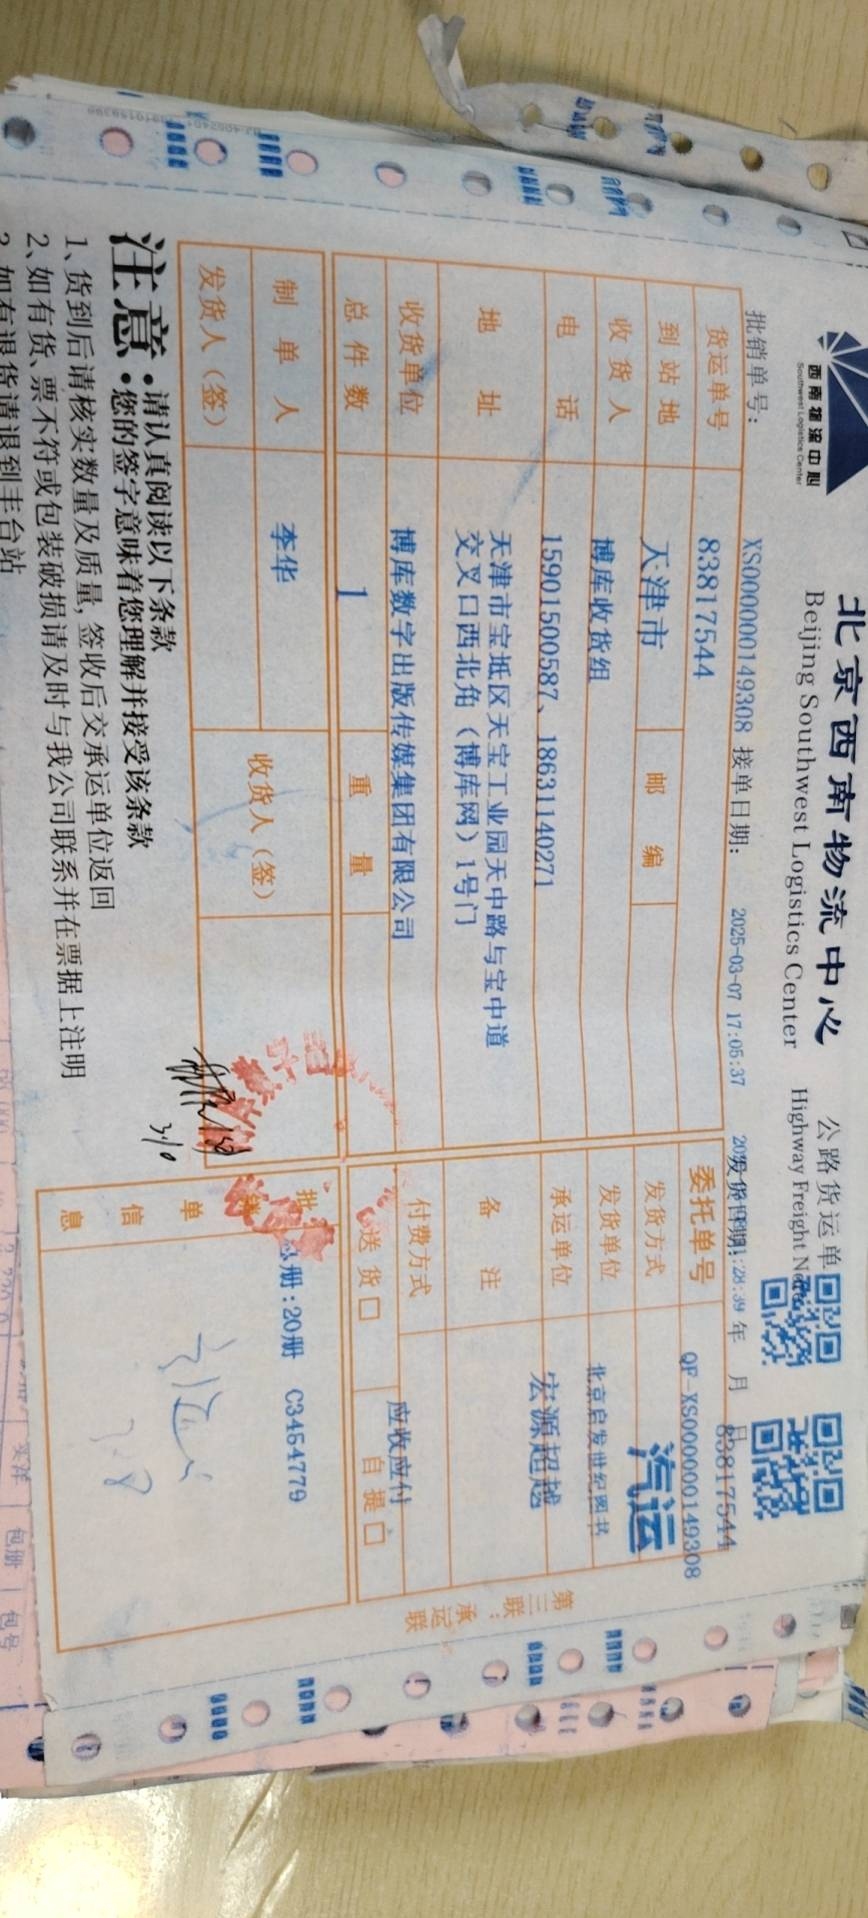 西南物流中心
Southwest Logistics Center
北京西南物流中心
Beijing Southwest Logistics Center
公路货运单
Highway Freight
批销单号: XS000000149308 接单日期: 2025-03-07 17:05:37
发货日期: 年 月 日
83817544
货运单号 83817544
委托单号 QF-XS000000149308
到站地 天津市 邮编
发货方式 汽运
收货人 博库收货组
发货单位 北京启发世纪图书
电话 15901500587、18631140271
承运单位 宏源超越
地址 天津市宝坻区天宝工业园天中路与宝中道
交叉口西北角（博库网）1号门
备注
收货单位 博库数字出版传媒集团有限公司
付费方式 应收应付
总件数 1 重量
送货□ 自提□
制单人 李华
收货人（签）
发货人（签）
批
单
信
息
册:20册 C3454779
3/10
3.8
第三联:承运联
注意·请认真阅读以下条款
·您的签字意味着您理解并接受该条款
1、货到后请核实数量及质量,签收后交承运单位返回
2、如有货、票不符或包装破损请及时与我公司联系并在票据上注明
3、如有退货请退到丰台站
包册
包号